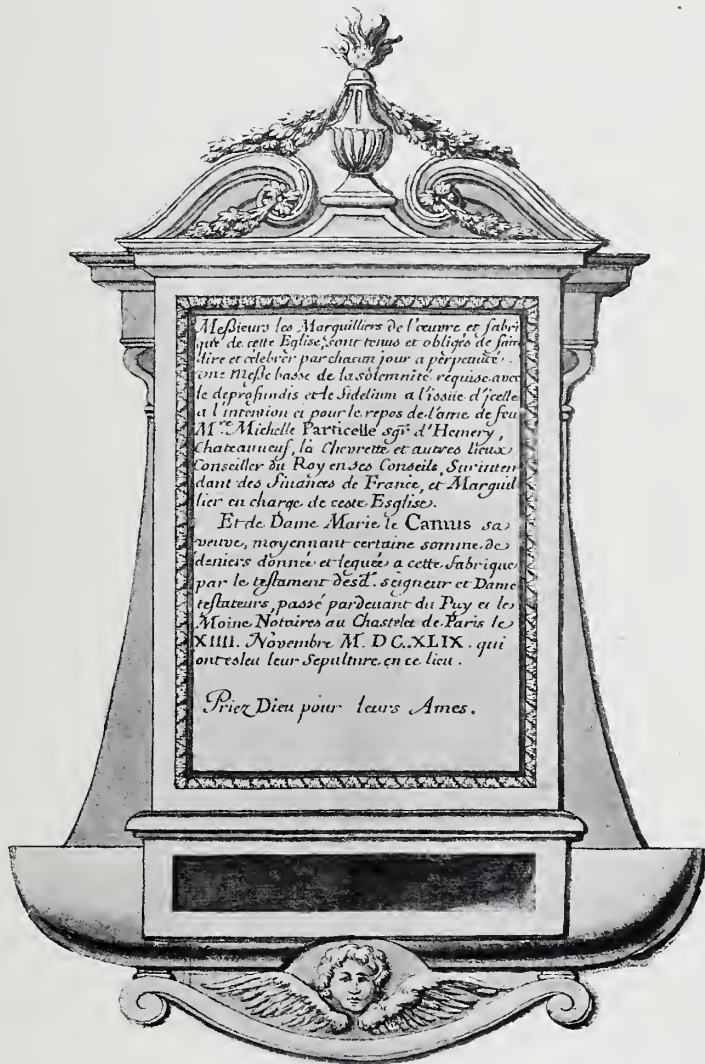 Meßieurs les Marguilliers de l'œuvre et fabri
que de cette Eglise, sont tenus et obligés de faire
dire et celebrer par chacun jour a perpetuité.
une Meße basse de la solemnité requise avec
le deprofundis et le fidelium a l'issue d'jcelle
a l'intention et pour le repos de l'ame de feu
M.re Michelle Particelle sgr. d'Hemery,
Chateauneuf, la Chevrette et autres lieux
Conseiller du Roy en ses Conseils, Surinten
dant des finances de France, et Marguil
lier en charge de ceste Esglise.
Et de Dame Marie le Camus sa
veuve, moyennant certaine somme de
deniers donnée et leguée a cette fabrique
par le testament desd. seigneur et Dame
testateurs, passé pardevant du Puy et le
Moine Notaires au Chastelet de Paris le
XIIII. Novembre M. DC.XLIX. qui
ont esleu leur Sepulture en ce lieu.
Priez Dieu pour leurs Ames.